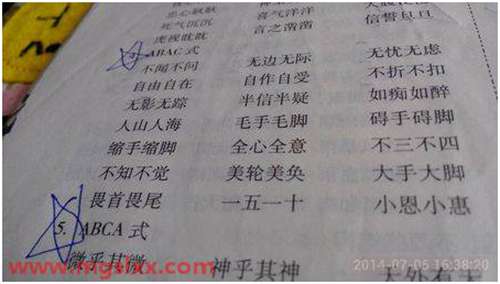 忠心耿耿
死气沉沉 喜气洋洋
虎视眈眈 言之凿凿 信誓旦旦
4. ABAC 式
不闻不问 无边无际 无忧无虑
自由自在 自作自受 不折不扣
无影无踪 半信半疑 如痴如醉
人山人海 毛手毛脚 碍手碍脚
缩手缩脚 全心全意 不三不四
不知不觉 美轮美奂 大手大脚
畏首畏尾 一五一十 小恩小惠
5. ABCA 式
微乎其微 神乎其神 天外有天
www.mgsltx.com
2014-07-05 16:38:20